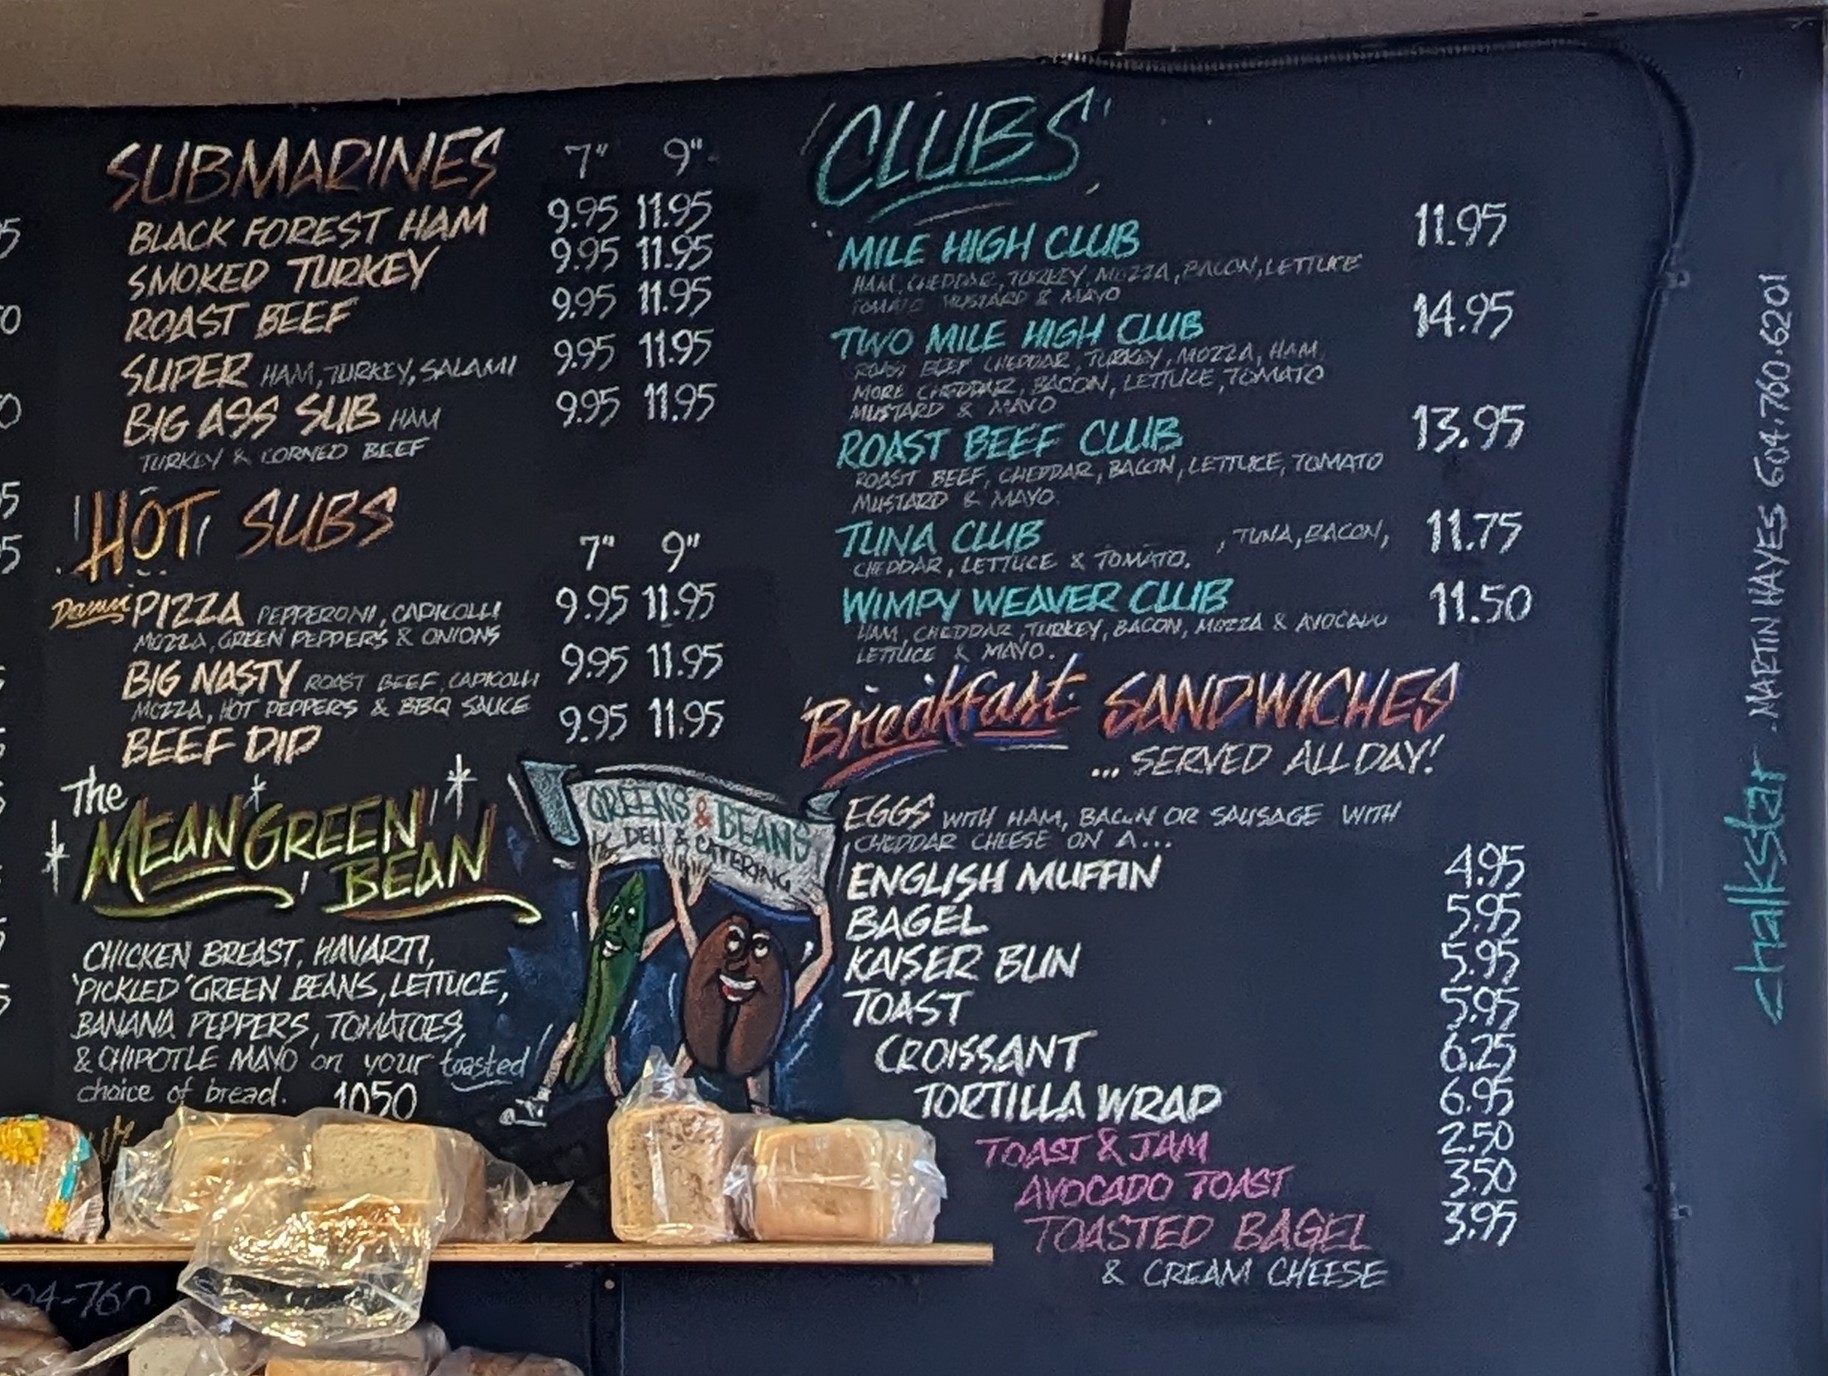 SUBMARINES 7" 9"
BLACK FOREST HAM 9.95 11.95
SMOKED TURKEY 9.95 11.95
ROAST BEEF 9.95 11.95
SUPER HAM, TURKEY, SALAMI 9.95 11.95
BIG ASS SUB HAM 9.95 11.95
TURKEY & CORNED BEEF
HOT SUBS 7" 9"
Damn PIZZA PEPPERONI, CAPICOLLI 9.95 11.95
MOZZA, GREEN PEPPERS & ONIONS
BIG NASTY ROAST BEEF, CAPICOLLI 9.95 11.95
MOZZA, HOT PEPPERS & BBQ SAUCE
BEEF DIP 9.95 11.95
The
MEAN GREEN
BEAN
CHICKEN BREAST, HAVARTI,
"PICKLED" GREEN BEANS, LETTUCE,
BANANA PEPPERS, TOMATOES,
& CHIPOTLE MAYO on your toasted
choice of bread. 1050
GREENS & BEANS
DELI & CATERING
CLUBS
MILE HIGH CLUB 11.95
HAM, CHEDDAR, TURKEY, MOZZA, BACON, LETTUCE
TOMATO MUSTARD & MAYO
TWO MILE HIGH CLUB 14.95
ROAST BEEF CHEDDAR, TURKEY, MOZZA, HAM,
MORE CHEDDAR, BACON, LETTUCE, TOMATO
MUSTARD & MAYO
ROAST BEEF CLUB 13.95
ROAST BEEF, CHEDDAR, BACON, LETTUCE, TOMATO
MUSTARD & MAYO.
TUNA CLUB , TUNA, BACON, 11.75
CHEDDAR, LETTUCE & TOMATO.
WIMPY WEAVER CLUB 11.50
HAM, CHEDDAR, TURKEY, BACON, MOZZA & AVOCADO
LETTUCE & MAYO.
Breakfast SANDWICHES
...SERVED ALL DAY!
EGGS WITH HAM, BACON OR SAUSAGE WITH
CHEDDAR CHEESE ON A...
ENGLISH MUFFIN 4.95
BAGEL 5.95
KAISER BUN 5.95
TOAST 5.95
CROISSANT 6.25
TORTILLA WRAP 6.95
TOAST & JAM 2.50
AVOCADO TOAST 3.50
TOASTED BAGEL 3.95
& CREAM CHEESE
chalkstar . MARTIN HAYES 604.760.6201